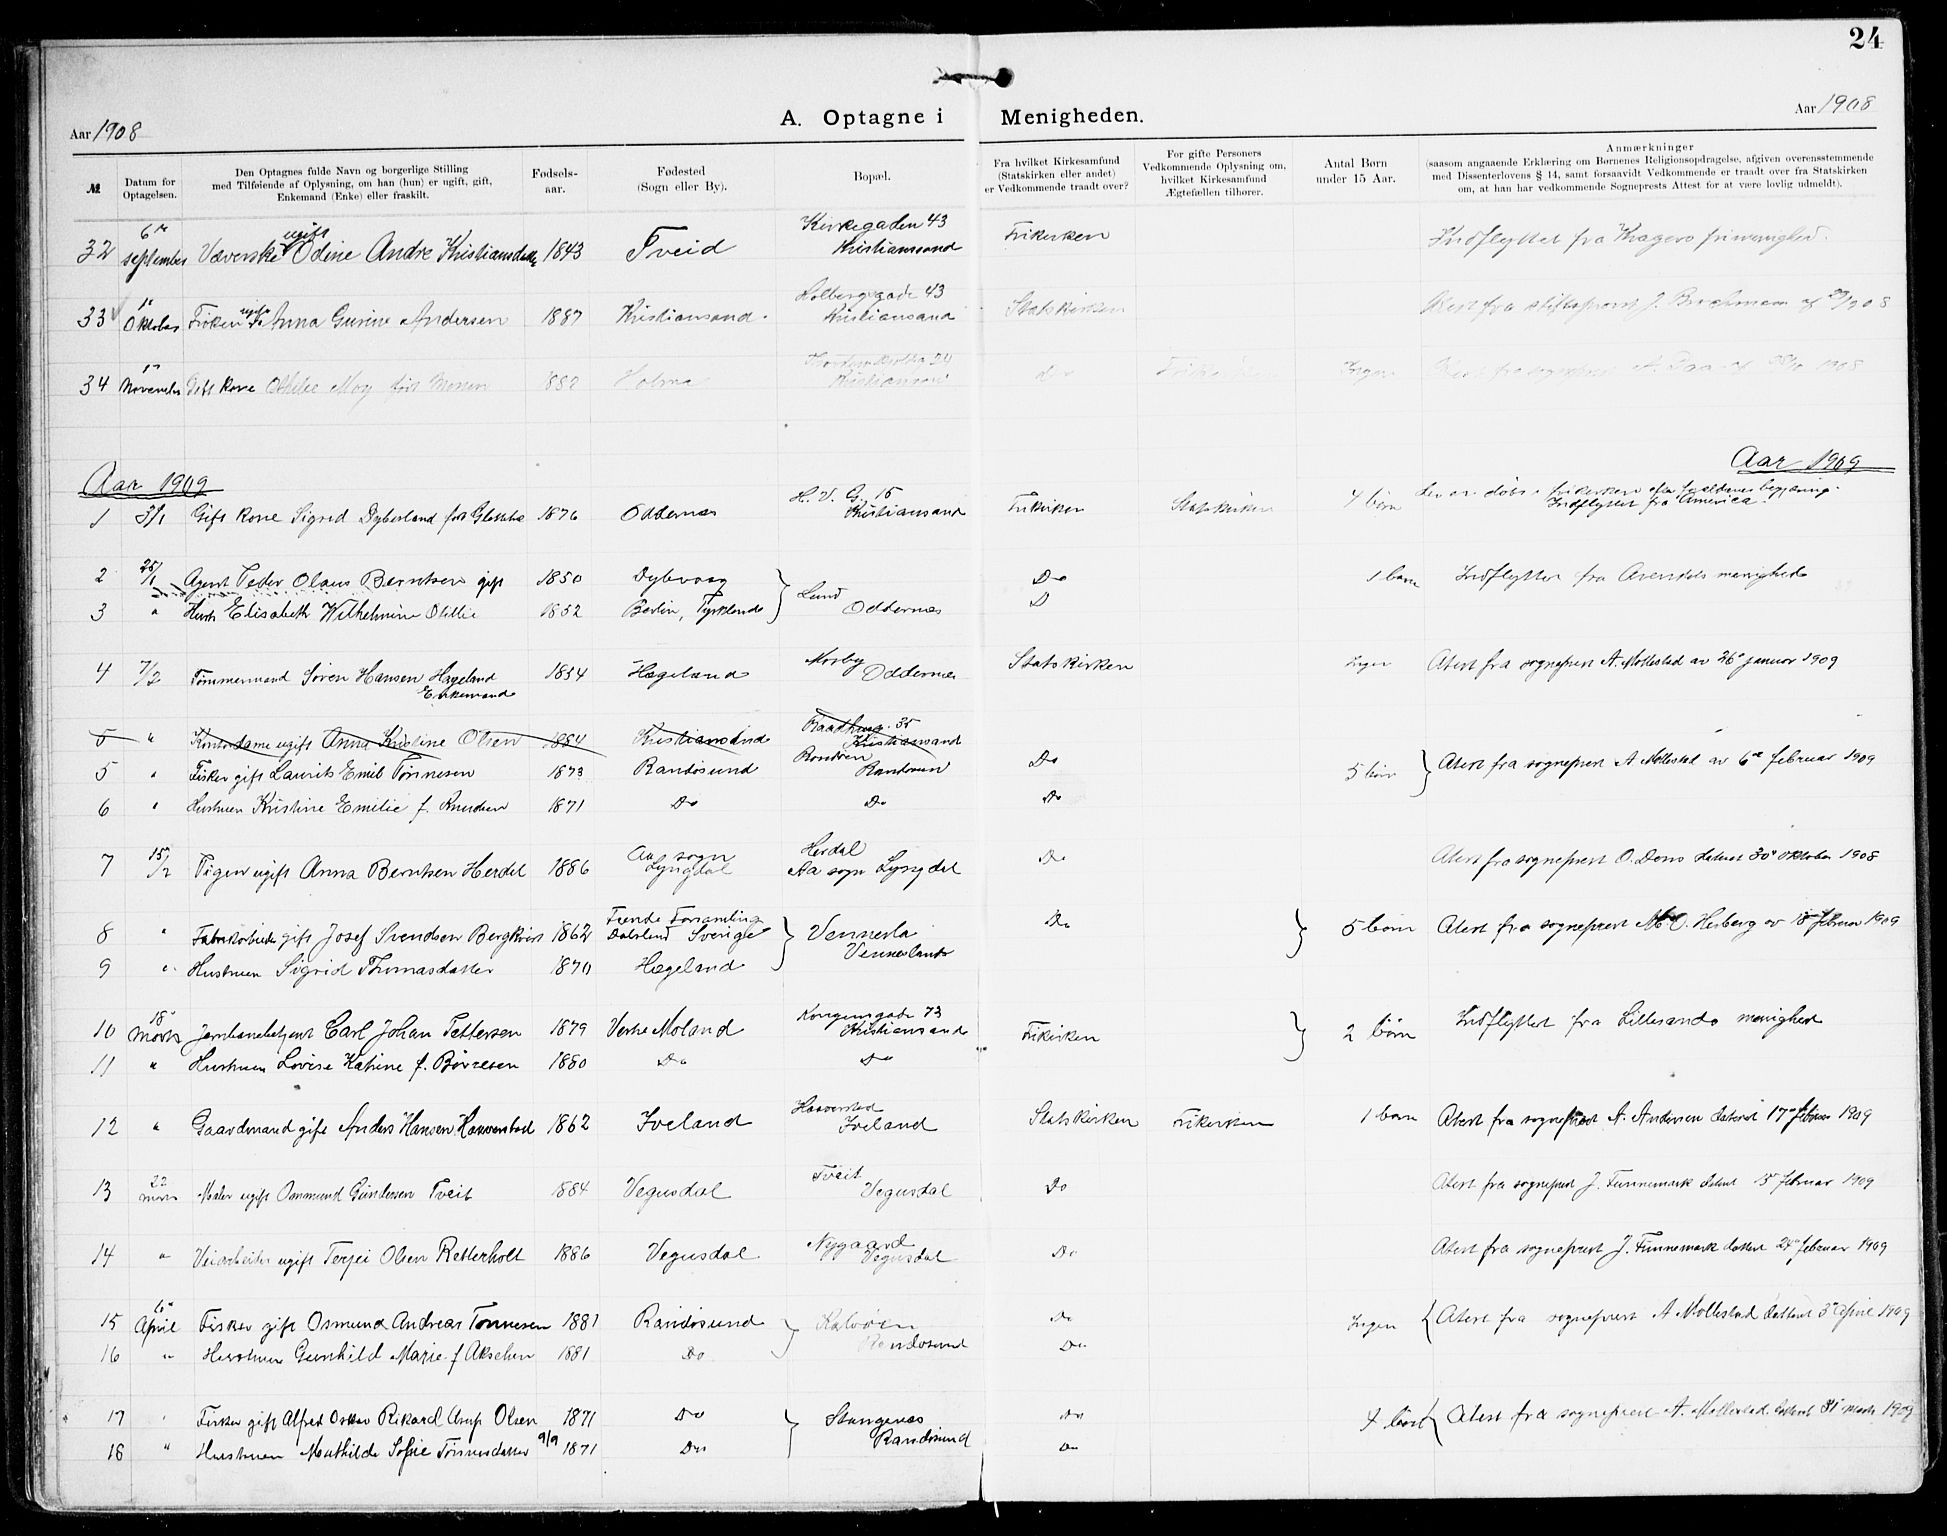 24
Aar 1908
A. Optagne i Menigheden.
Aar 1908
№
Datum for Optagelsen.
Den Optagnes fulde Navn og borgerlige Stilling
med Tilføiende af Oplysning, om han (hun) er ugift, gift,
Enkemand (Enke) eller fraskilt.
Fødsels-
aar.
Fødested
(Sogn eller By).
Bopæl.
Fra hvilket Kirkesamfund
(Statskirken eller andet)
er Vedkommende traadt over?
For gifte Personers
Vedkommende Oplysning om,
hvilket Kirkesamfund
Ægtefællen tilhører.
Antal Børn
under 15 Aar.
Anmærkninger
(saasom angaaende Erklæring om Børnenes Religionsopdragelse, afgiven overensstemmende
med Dissenterlovens § 14, samt forsaavidt Vedkommende er traadt over fra Statskirken
om, at han har vedkommende Sogneprests Attest for at være lovlig udmeldt).
32 6te september Væverske ugift Odine Andre 1843 Tveid Kirkegaden 43 Kristiansand Frikirken Indflyttet fra Kragerø frimenighed.
33 Oktober Frøken ugift Anna Gurine Andersen 1887 Kristiansand. Holbergsgade 43 Kristiansand Statskirken Atest fra stiftsprovst J.
34 November Gift kone Moy født 1882 Holme 24 Kristiansand do Ingen Atest fra sogneprest A. 1908
Aar 1909 Aar 1909
1 3/1 Gift kone Sigrid Dyberland født 1876 Oddernes H. V. G. 15 Kristiansand Frikirken Statskirken 4 børn døbt i frikirken efter begjæring.
Indflyttet fra America
2 25/1 Agent Peder Olaus Berntsen gift 1850 Dybvaag } Lund Do 1 barn Indflyttet fra Arendals menighed
3 " Hust. Elisabeth Wilhelmine Otillie 1852 Berlin, Tyskland Oddernes D
4 7/2 Tømmermand Søren Hansen Hægeland Enkemand 1854 Hægeland Mosby Oddernes Statskirken Ingen Atest fra sogneprest A. Mollestad av 26e januar 1909
5 " Kontordame ugift Anna Kristine Olsen 1884 Kristiansand 35 Kristiansand
5 " Fisker gift Laurits Emil Tønnesen 1873 Randøsund Randøen Randøsund Do 5 børn } Atest fra sogneprest A Mollestad av 6te februar 1909
6 " Hustruen Kristine Emilie f. Knudsen 1871 Do Do Do
7 15/2 Pigen ugift Anna Berntsen Herdal 1886 Aa sogn Lyngdal Herdal Aa sogn Lyngdal Do Atest fra sogneprest O. Dons datert 30e oktober 1908
8 " Fabrikarbeider gift Josef Svendsen Bergkvist 1862 Forsamling Dalsland Sverige } Vennesla Do } 5 børn Atest fra sogneprest Hesberg av 18e februar 1909
9 " Hustruen Sigrid Thomasdatter 1870 Hægeland Venneslands
10 18e Marts Jernbanebetjent Carl Johan Pettersen 1879 Vestre Moland Kongensgade 73 Kristiansand Frikirken } 2 børn Indflyttet fra Lillesands menighed
11 " Hustruen Lovise Katrine f. Børresen 1880 Do Do
12 " Gaardmand gift Anders Hansen Haaverstad 1862 Iveland Haaverstad Iveland Statskirken Frikirken 1 barn Atest fra sogneprest A. Andersen datert 17e februar 1909
13 22 marts Maler ugift Osmund Gundersen Tveit 1884 Vegusdal Tveit Vegusdal Do Atest fra sogneprest J. Funnemark datert 15e februar 1909
14 " Veiarbeider ugift Terjei Olsen Retterholt 1886 Vegusdal Nygaard Vegusdal Do Atest fra sogneprest J. Funnemark datert 24e februar 1909
15 6e April Fisker gift Osmund Andreas Tønnesen 1881 Randøsund } Kalvøen Do Ingen { Atest fra sogneprest A Mollestad datert 3e April 1909
16 " Hustruen Gunhild Marie f Akselsen 1881 Do Randøsund Do
17 " Fisker gift Alfred Oskar Rikard Arup Olsen 1871 Do } Stangenes Do 4 børn { Atest fra sogneprest A. Mollestad datert 31e marts 1909
18 " Hustruen Mathilde Sofie Tønnesdatter 9/9 1871 Do Randøsund Do